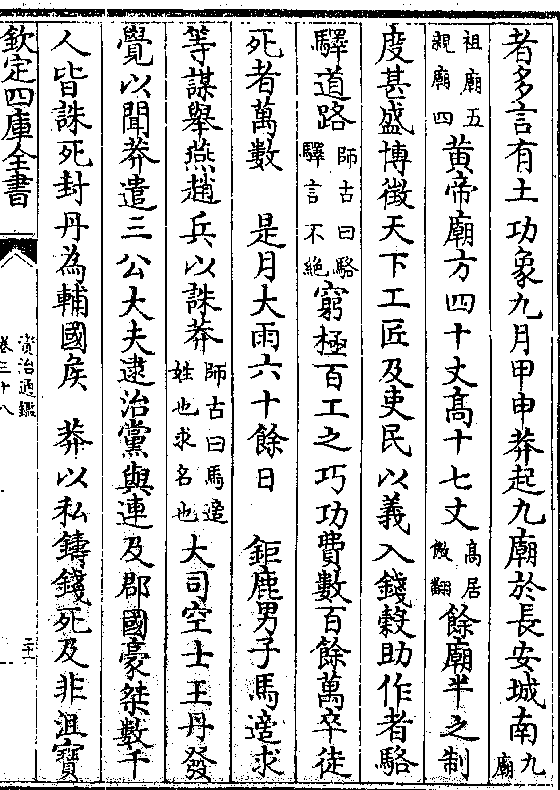 者多言有土功象九月甲申莽起九廟於長安城南九廟
祖廟五親廟四黄帝廟方四十丈高十七丈高居傲翻餘廟半之制
度甚盛博徵天下工匠及吏民以義入錢穀助作者駱
驛道路師古曰駱驛言不絶窮極百工之巧功費數百餘萬卒徒
死者萬數　是月大雨六十餘日　鉅鹿男子馬適求
等謀舉燕趙兵以誅莽師古曰馬適姓也求名也大司空士王丹發
覺以聞莽遣三公大夫逮治黨與連及郡國豪桀數千
人皆誅死封丹為輔國侯　莽以私鑄錢死及非沮寶
欽定四庫全書
資治通鑑
卷三十八